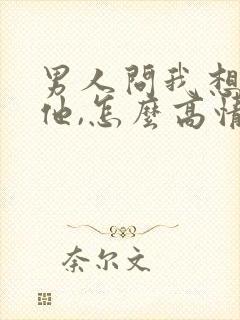 男人問我想
他,怎麼高情
奈尔文